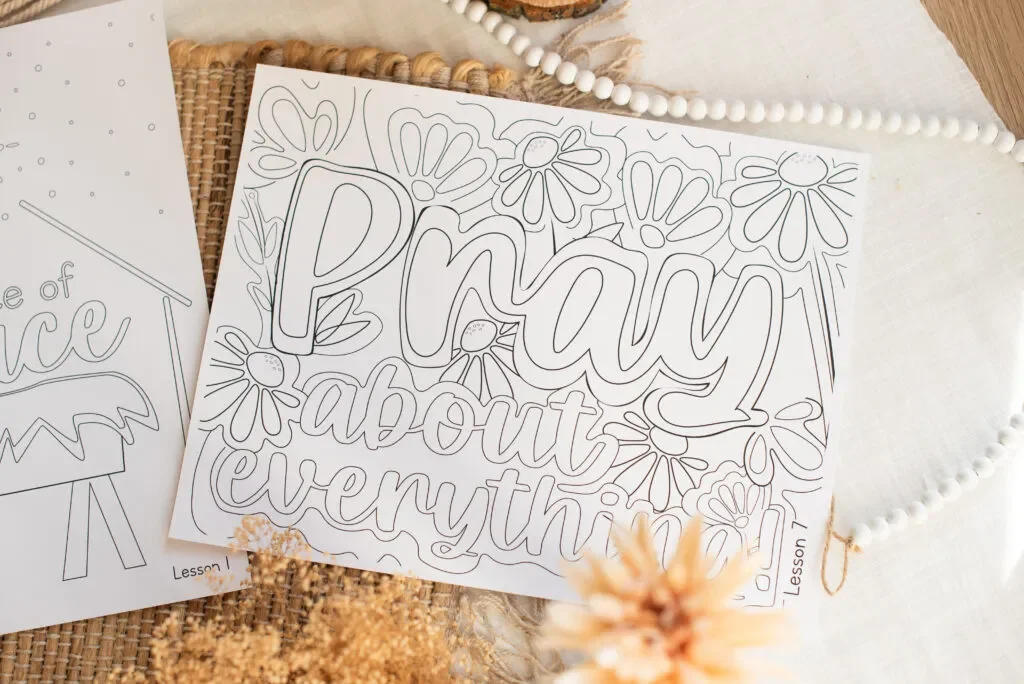 of
Lesson 1
Pray
about
everything!
Lesson 7